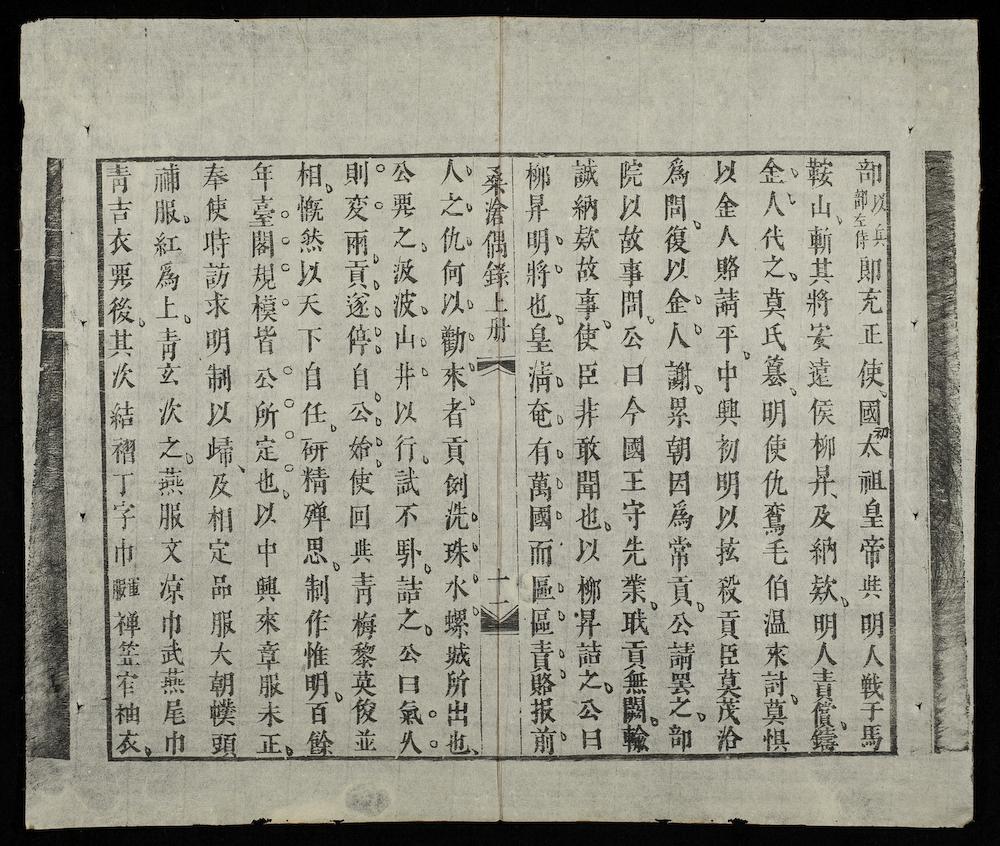 部以兵部左侍郎充正使國初太祖皇帝與明人戰于馬
鞍山斬其將安遠侯柳昇及納欵明人責償鑄
金人代之莫氏篡明使仇鸞毛伯温來討莫惧
以金人賂請平中興初明以拔殺貢臣莫茂洽
爲問復以金人謝累朝因爲常貢公請罷之部
院以故事問公曰今國王守先業職貢無闕輸
誠納欵故事使臣非敢聞也以柳昇詰之公曰
柳昇明將也皇淸奄有萬國而區區責賂报前
桑滄偶錄上册 十二
人之仇何以勸來者貢例洗珠水螺城所出也
公要之汲波山井以行試不卧詰之公曰氣久
則变雨貢遂停自公始使回與靑梅黎英俊並
相慨然以天下自任研精殫思制作惟明百餘
年臺閣規模皆公所定也以中興來章服未正
奉使時訪求明制以歸及相定品服大朝幞頭
補服紅爲上靑玄次之燕服文凉巾武燕尾巾
靑吉衣要後其次結褶丁字巾重服禅笠窄袖衣